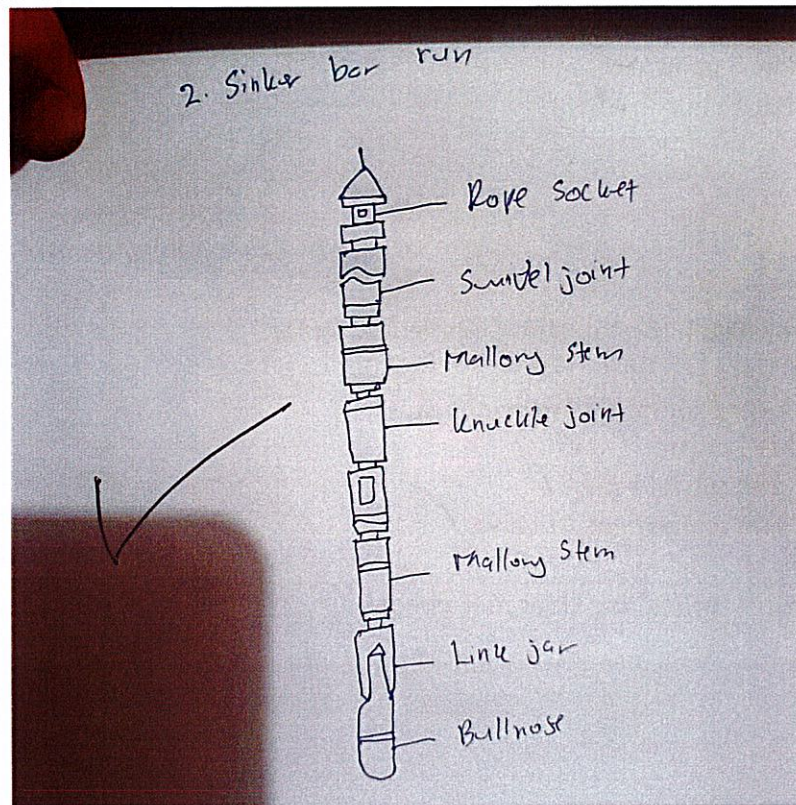 2. Sinker bar run
Rope Socket
Swivel joint
Mallory Stem
Knuckle joint
Mallory Stem
Link jar
Bullnose